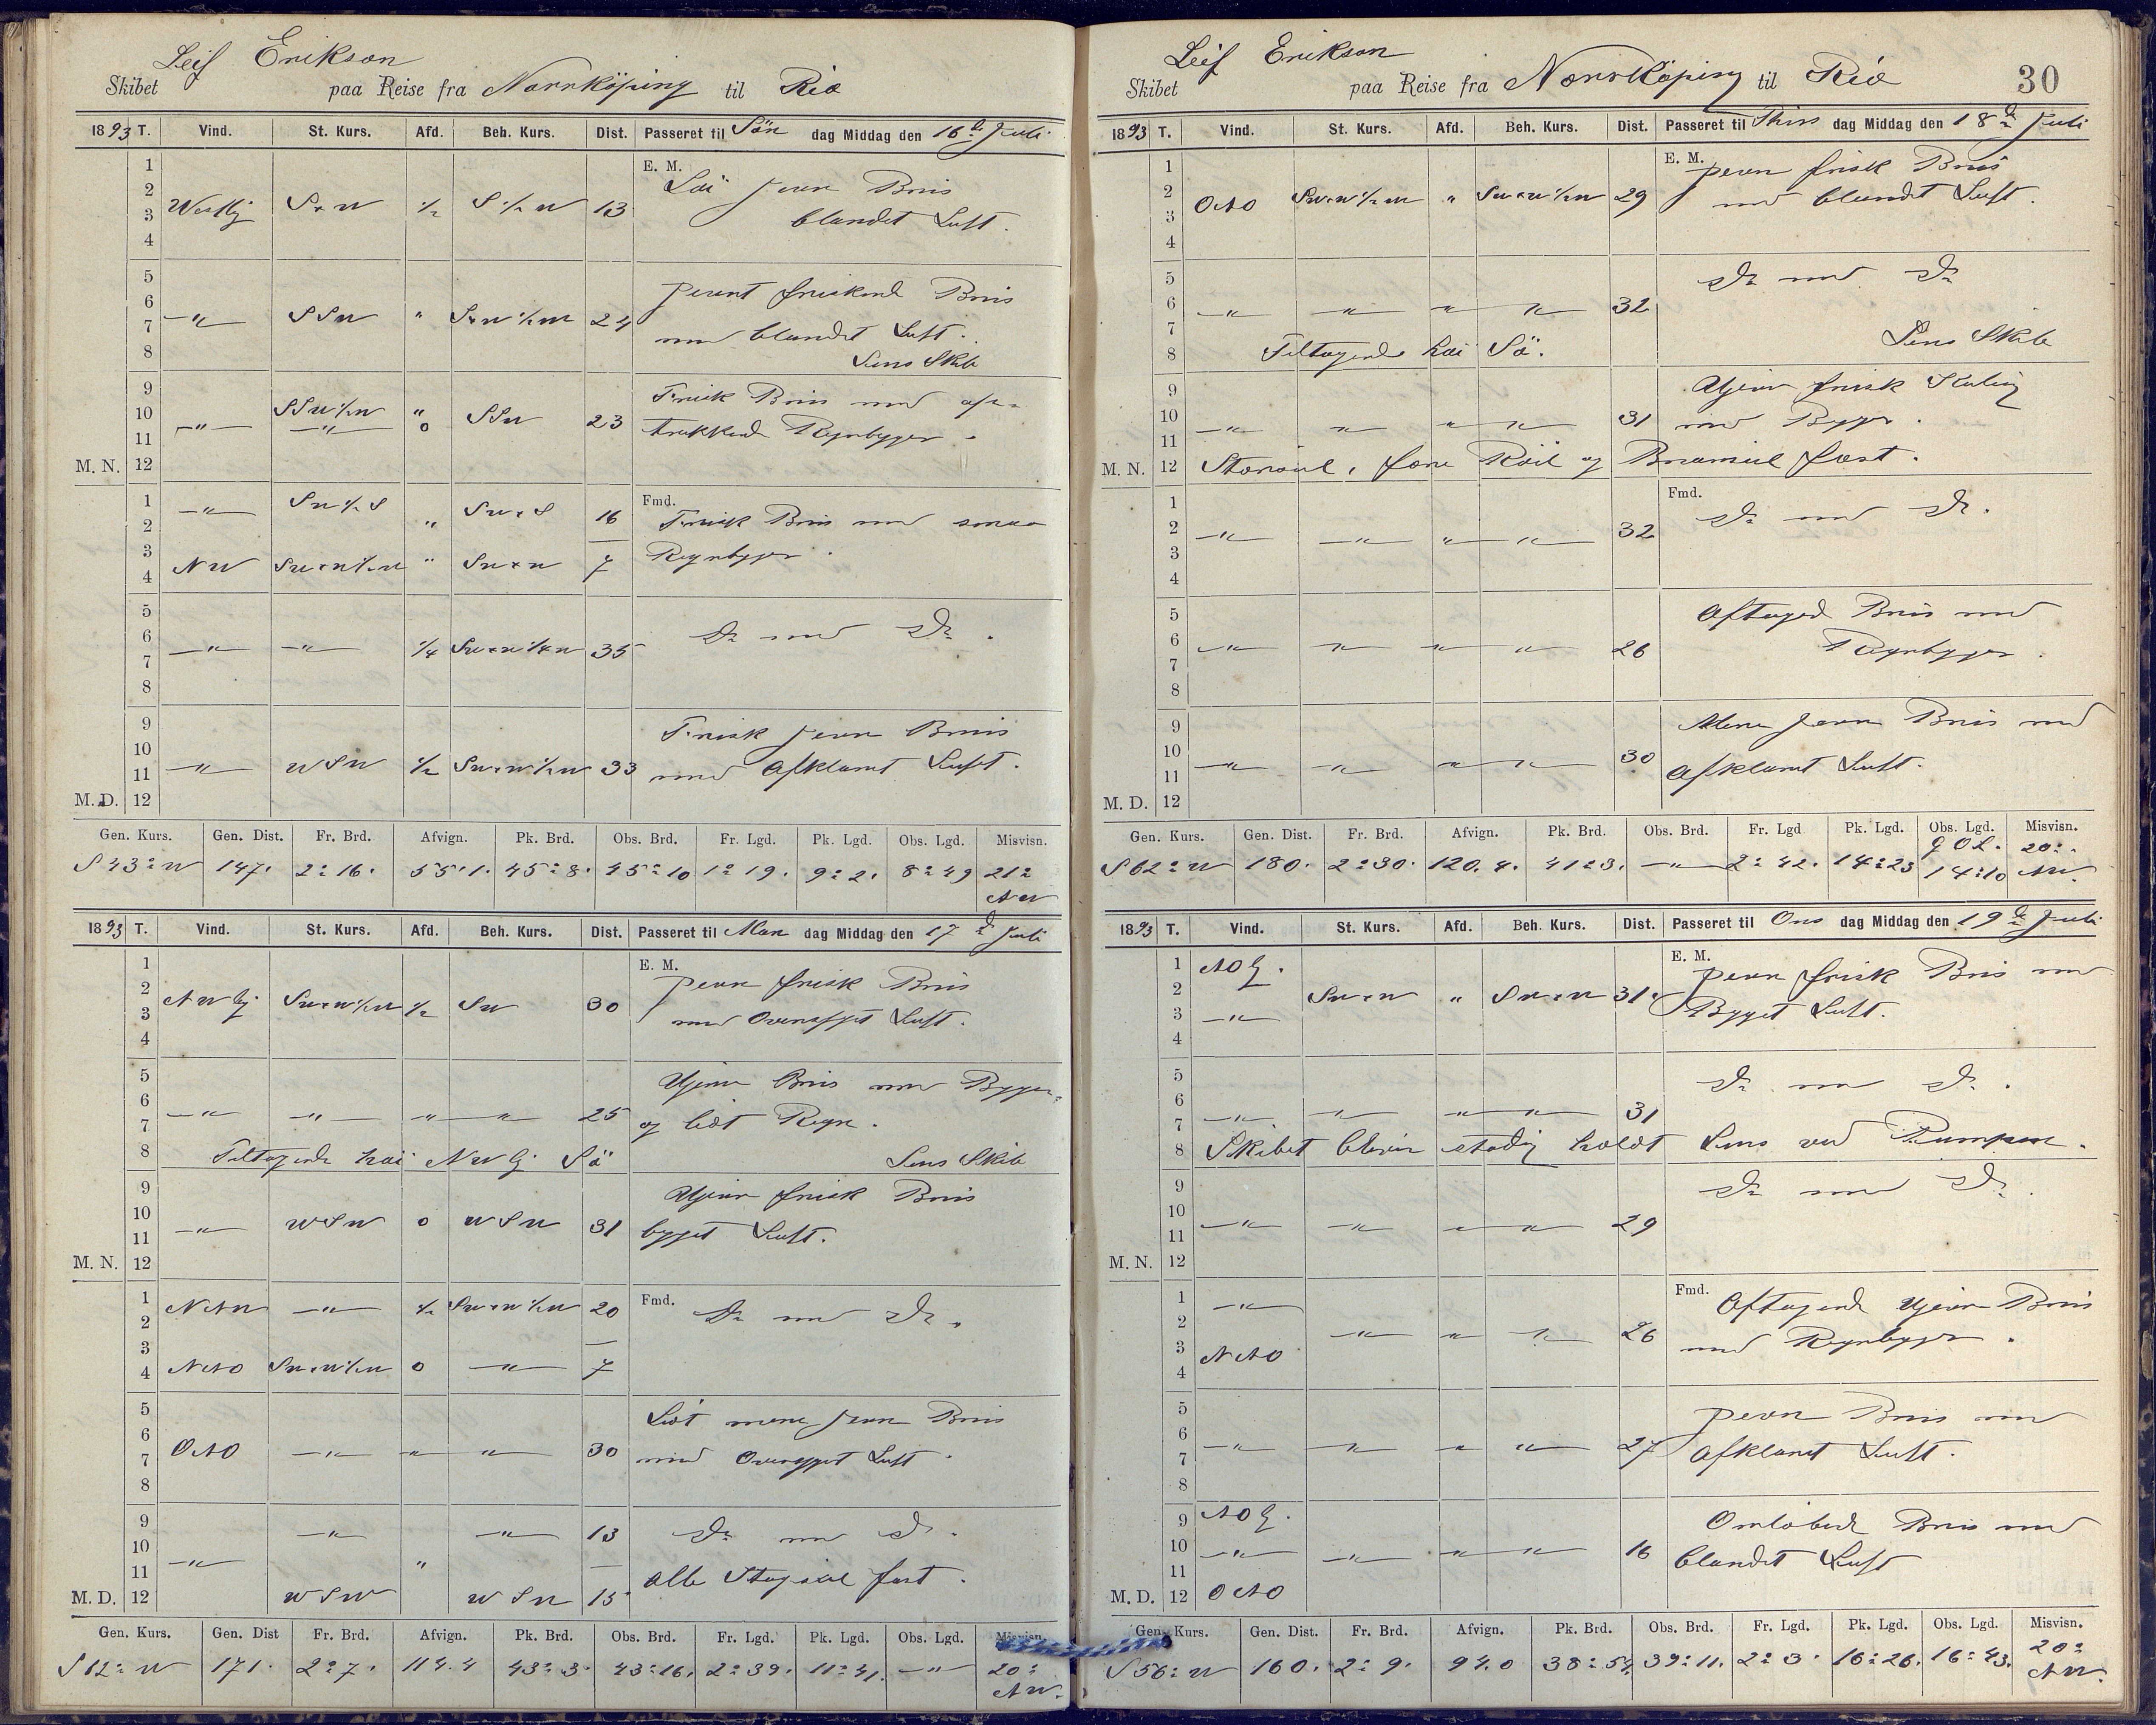 Leif Erikson
Skibet paa Reise fra Norrköping til Rio
1893 T. Vind. St. Kurs. Afd. Beh. Kurs. Dist. Passeret til Sön dag Middag den 16de Juli
1 E. M.
2 Löi jevn Bris
3 Westlig S×W 1/2 S 1/2 W 13 blandet Luft.
4
5
6 jevnt friskende Bris
7 —"— SSW " S×W 1/2 W 24 med blandet Luft.
8 Lens Skib
9 Frisk Bris med op-
10 SSW 1/2 W "
11 —"— —"— 0 SSW 23 trekkende Regnbyger.
M. N. 12
1 —"— SW 1/2 S " SW×S 16 Fmd.
2 Frisk Bris med smaa
3 Regnbyger.
4 NW SW×W 1/2 W " SW×W 7
5
6 Do med Do.
7 —"— —"— 1/4 SW×W 1/4 W 35
8
9 Frisk jevn Bris
10
11 —"— WSW 1/2 SW×W 1/2 W 33 med Afklaret Luft.
M. D. 12
Gen. Kurs. Gen. Dist. Fr. Brd. Afvign. Pk. Brd. Obs. Brd. Fr. Lgd. Pk. Lgd. Obs. Lgd. Misvisn.
S 43° W 147. 2° 16. 55.1. 45° 8. 45° 10 1° 19. 9° 2. 8° 49 21° NW
1893 T. Vind. St. Kurs. Afd. Beh. Kurs. Dist. Passeret til Man dag Middag den 17de Juli
1 E. M.
2 jevn frisk Bris
3 NWlig SW×W 1/2 W 1/2 SW 30 med Overskyet Luft.
4
5
6 Ujevn Bris med Byger
7 —"— —"— —"— —"— 25 og lidt Regn.
8 Tiltagende höi NWlig Sö Lens Skib
9 Ujevn frisk Bris
10
11 —"— WSW 0 WSW 31 byget Luft.
M. N. 12
1 NNW —"— 1/2 SW×W 1/2 W 20 Fmd. Do med Do.
2
3
4 NNO SW×W 1/2 W 0 —"— 7
5 Lidt mere jevn Bris
6
7 ONO —"— —"— —"— 30 med Overskyet Luft.
8
9 —"— —"— 13 Do med Do.
10
11 —"— " Alle Stagseil fast.
M. D. 12 WSW WSW 15
Gen. Kurs. Gen. Dist Fr. Brd. Afvign. Pk. Brd. Obs. Brd. Fr. Lgd. Pk. Lgd. Obs. Lgd. Misvisn.
S 62° W 171. 2° 7. 114.4 43° 3. 43° 16. 2° 39. 11° 41. —"— 20° NW.
30
Leif Erikson
Skibet paa Reise fra Norrköping til Rio
1893 T. Vind. St. Kurs. Afd. Beh. Kurs. Dist. Passeret til Tirs dag Middag den 18de Juli
1 E. M. jevn frisk Bris
2
3 ONO SW×W 1/2 W " SW×W 1/2 W 29 med blandet Luft.
4
5 Do med Do
6 —"— —"— —"— —"— 32
7
8 Tiltagende höi Sö. Lens Skib
9 Ujevn frisk Kuling
10
11 —"— —"— —"— —"— 31 med Byger.
M. N. 12 Storseil, fore Röil og Bramseil fast.
1 Fmd. Do med Do.
2 —"— —"— —"— —"— 32
3
4
5 Aftagend Bris med
6 —"— —"— —"— —"— 26 Regnbyger.
7
8
9 Mere jevn Bris med
10
11 —"— —"— —"— —"— 30 Afklaret Luft.
M. D. 12
Gen. Kurs. Gen. Dist. Fr. Brd. Afvign. Pk. Brd. Obs. Brd. Fr. Lgd Pk. Lgd. Obs. Lgd. Misvisn.
S 62° W 180. 2° 30. 120.4. 41° 3. —"— 2° 42. 14° 23 14° 10 20° NW.
1893 T. Vind. St. Kurs. Afd. Beh. Kurs. Dist. Passeret til Ons dag Middag den 19de Juli
1 NOlg. E. M. jevn frisk Bris med
2 SW×W " SW×W 31. Byget Luft.
3 —"—
4
5 Do med Do.
6
7 —"— —"— —"— —"— 31
8 Skibet bliver stadig holdt Lens ved Pumpen.
9 Do med Do.
10
11 —"— —"— —"— —"— 29
M. N. 12
1 —"— Fmd. Aftagende Ujevn Bris
2 —"— —"— —"— 26 med Regnbyger.
3 NNO
4
5 jevn Bris med
6
7 —"— —"— —"— —"— 27 Afklaret Luft.
8
9 NOlg. Omlöbende Bris med
10 —"— —"— —"— —"— 16 blandet Luft
11
M. D. 12 ONO
Gen. Kurs. Gen. Dist. Fr. Brd. Afvign. Pk. Brd. Obs. Brd. Fr. Lgd. Pk. Lgd. Obs. Lgd. Misvisn.
S 56° W 160. 2° 9. 94.0 38° 54. 39° 11. 2° 3. 16° 26. 16° 43. 20° NW.